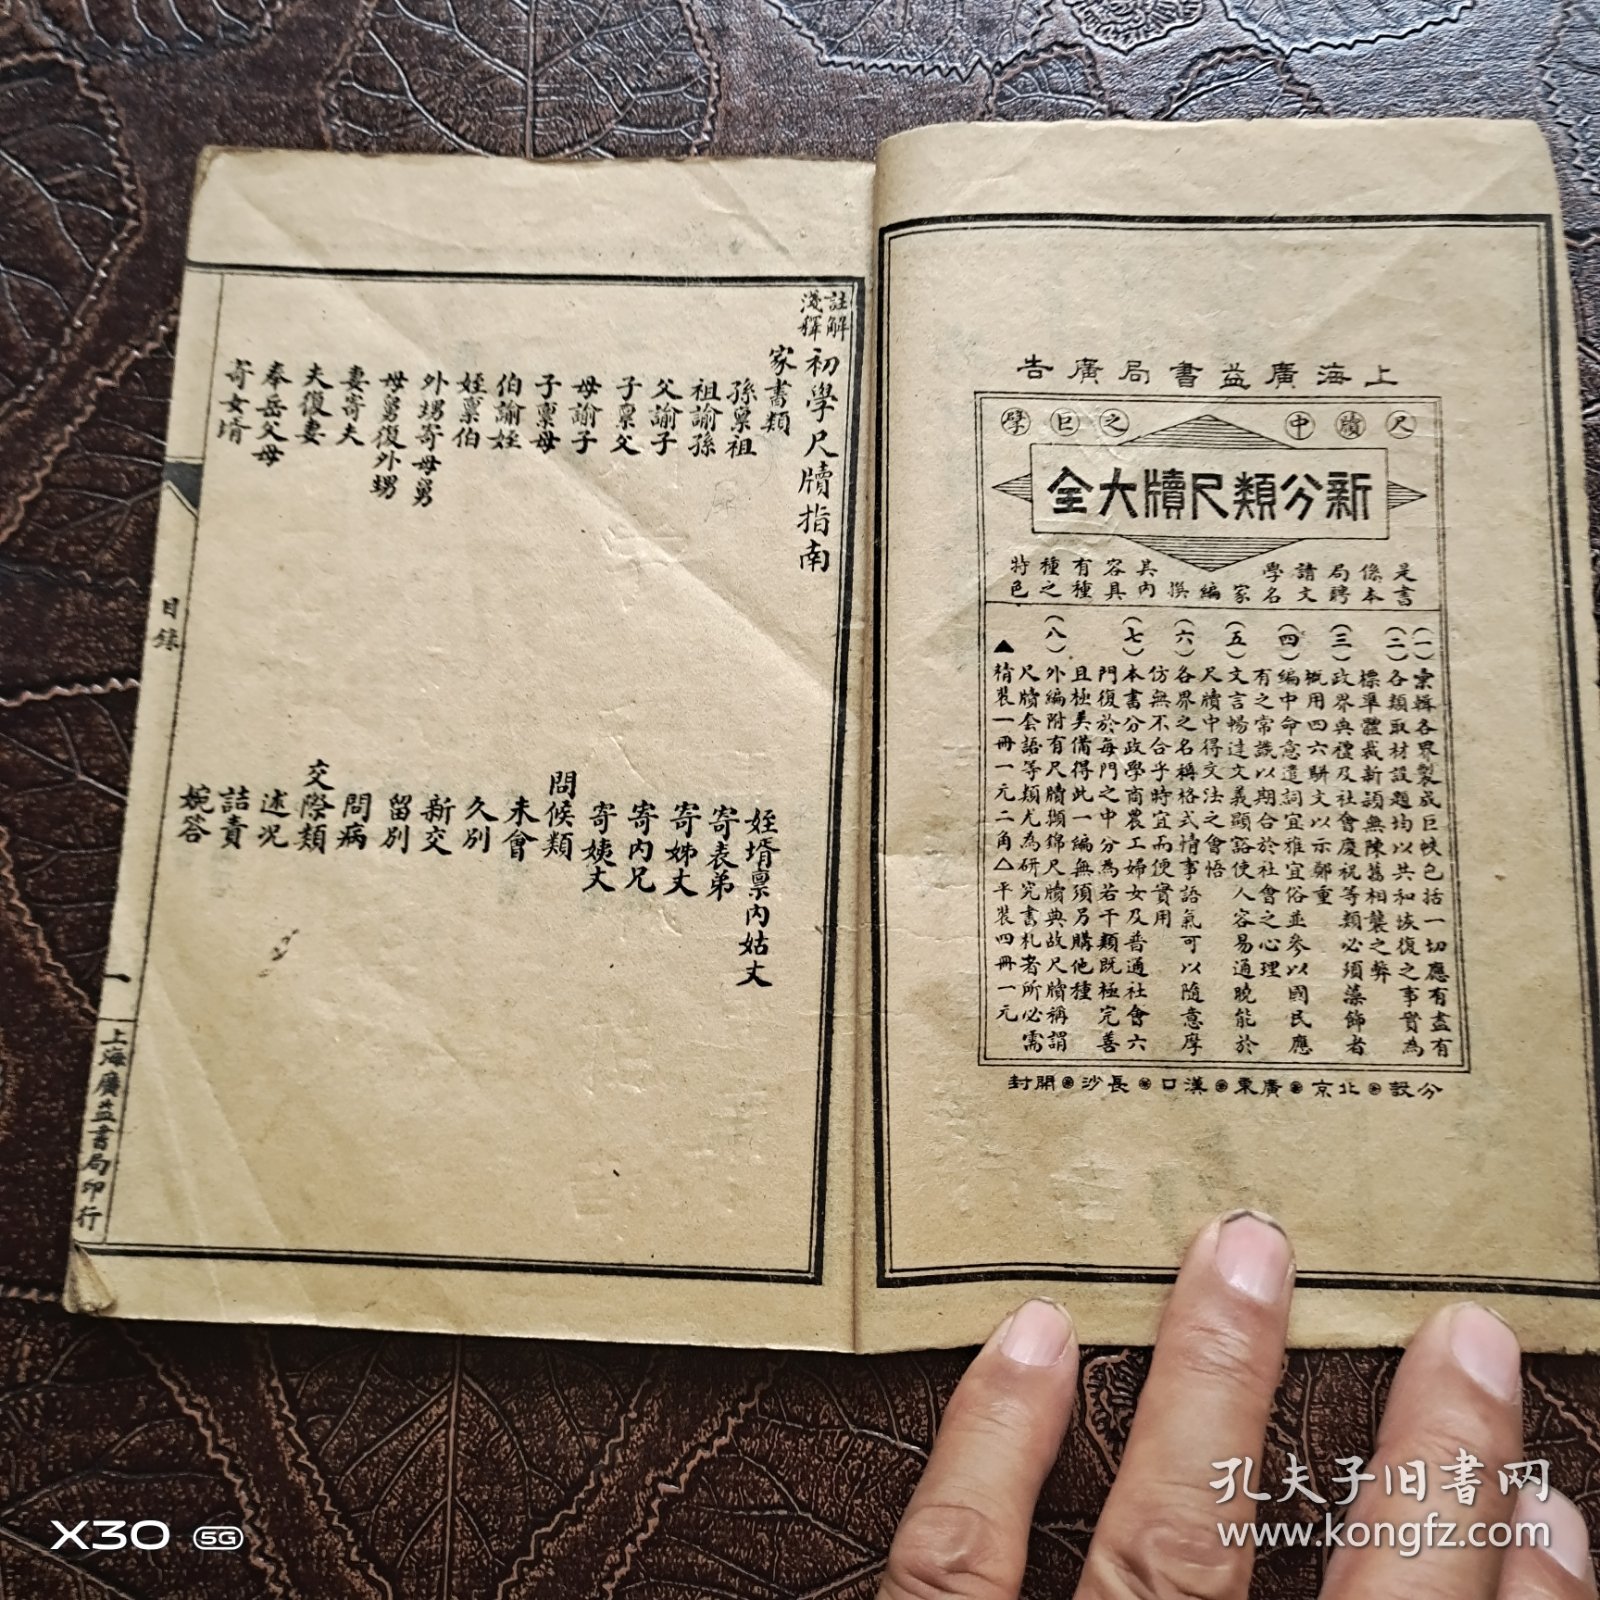 上海廣益書局廣告
尺牘中之巨擘
新分類尺牘大全
是書係本局聘請文學名家編撰其內容具有種種之特色
(一)彙輯各界製成巨帙包括一切應有盡有
(二)各類取材設題均以共和恢復之事實為
標準體裁新頴無陳舊相襲之弊
(三)政界典禮及社會慶祝等類必須藻飾者
概用四六駢文以示鄭重
(四)編中命意遣詞宜雅宜俗並參以國民應
有之常識以期合於社會之心理
(五)文言暢達文義顯豁使人容易通曉能於
尺牘中得文法之會悟
(六)各界之名稱格式情事語氣可以隨意摩
仿無不合乎時宜而便實用
(七)本書分政學商農工婦女及普通社會六
門復於每門之中分為若干類既極完善
且極美備得此一編無須乃購他種
(八)外編附有尺牘類錦尺牘典故尺牘稱謂
尺牘套語等類尤為研究書札者所必需
▲精裝一冊一元二角△平裝四冊一元
分設北京廣東漢口長沙開封
註解淺釋初學尺牘指南
家書類
孫稟祖
祖諭孫
父諭子
子稟父
母諭子
子稟母
伯諭姪
姪稟伯
外甥寄母舅
母舅復外甥
妻寄夫
夫復妻
奉岳父母
寄女壻
姪壻稟內姑丈
寄表弟
寄姊丈
寄內兄
寄姨丈
問候類
未會
久別
新交
留別
問病
交際類
述況
詰責
婉答
目錄
一
上海廣益書局印行
X30 5G
孔夫子旧书网
www.kongfz.com